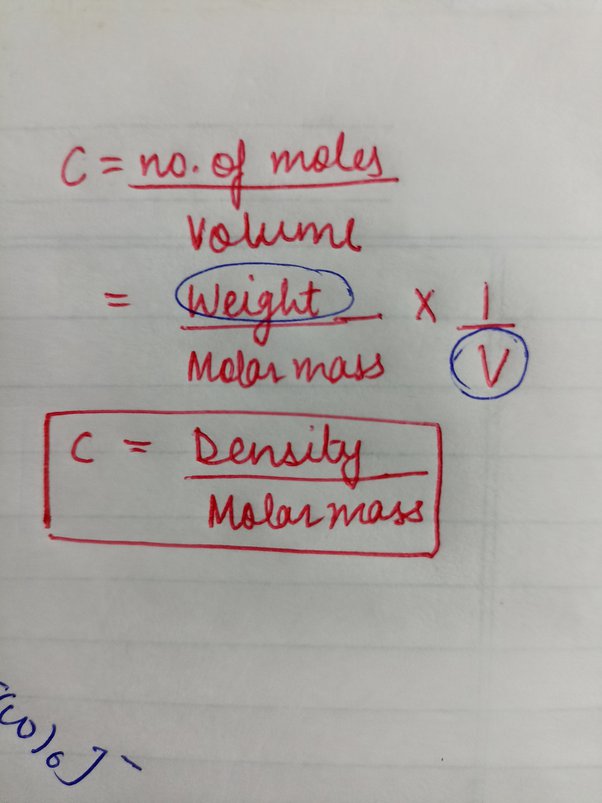 C = no. of moles
Volume
= Weight × 1
Molar mass V
C = Density
Molar mass
(CO)6]-